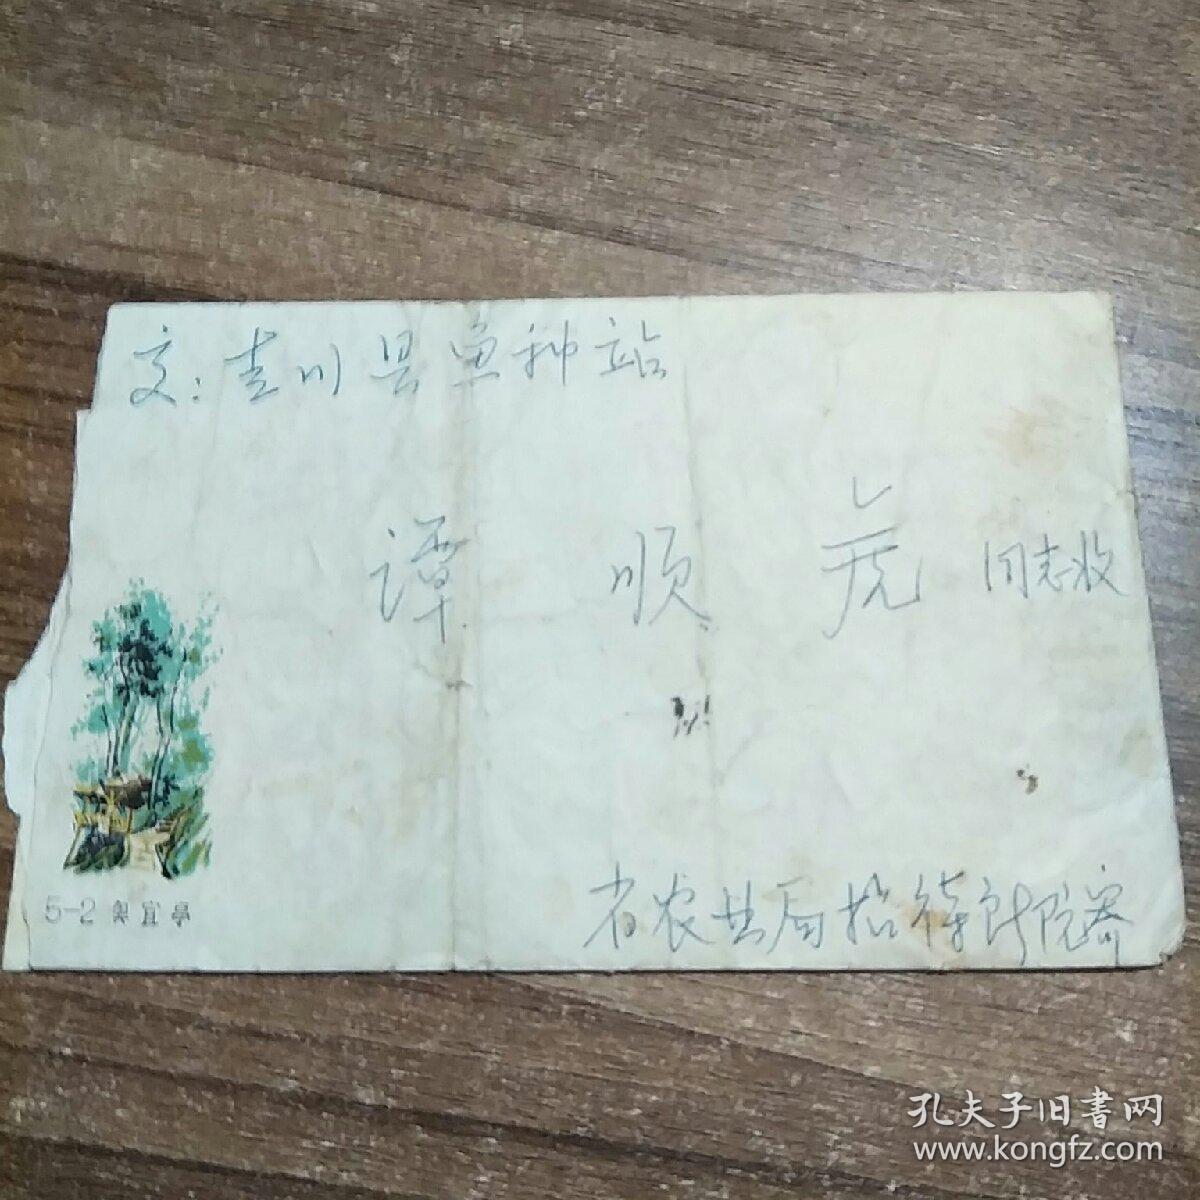 交：吉川县鱼种站
谭顺虎同志收
5-2 奥宜亭
省农业局招待所
孔夫子旧書网
www.kongfz.com